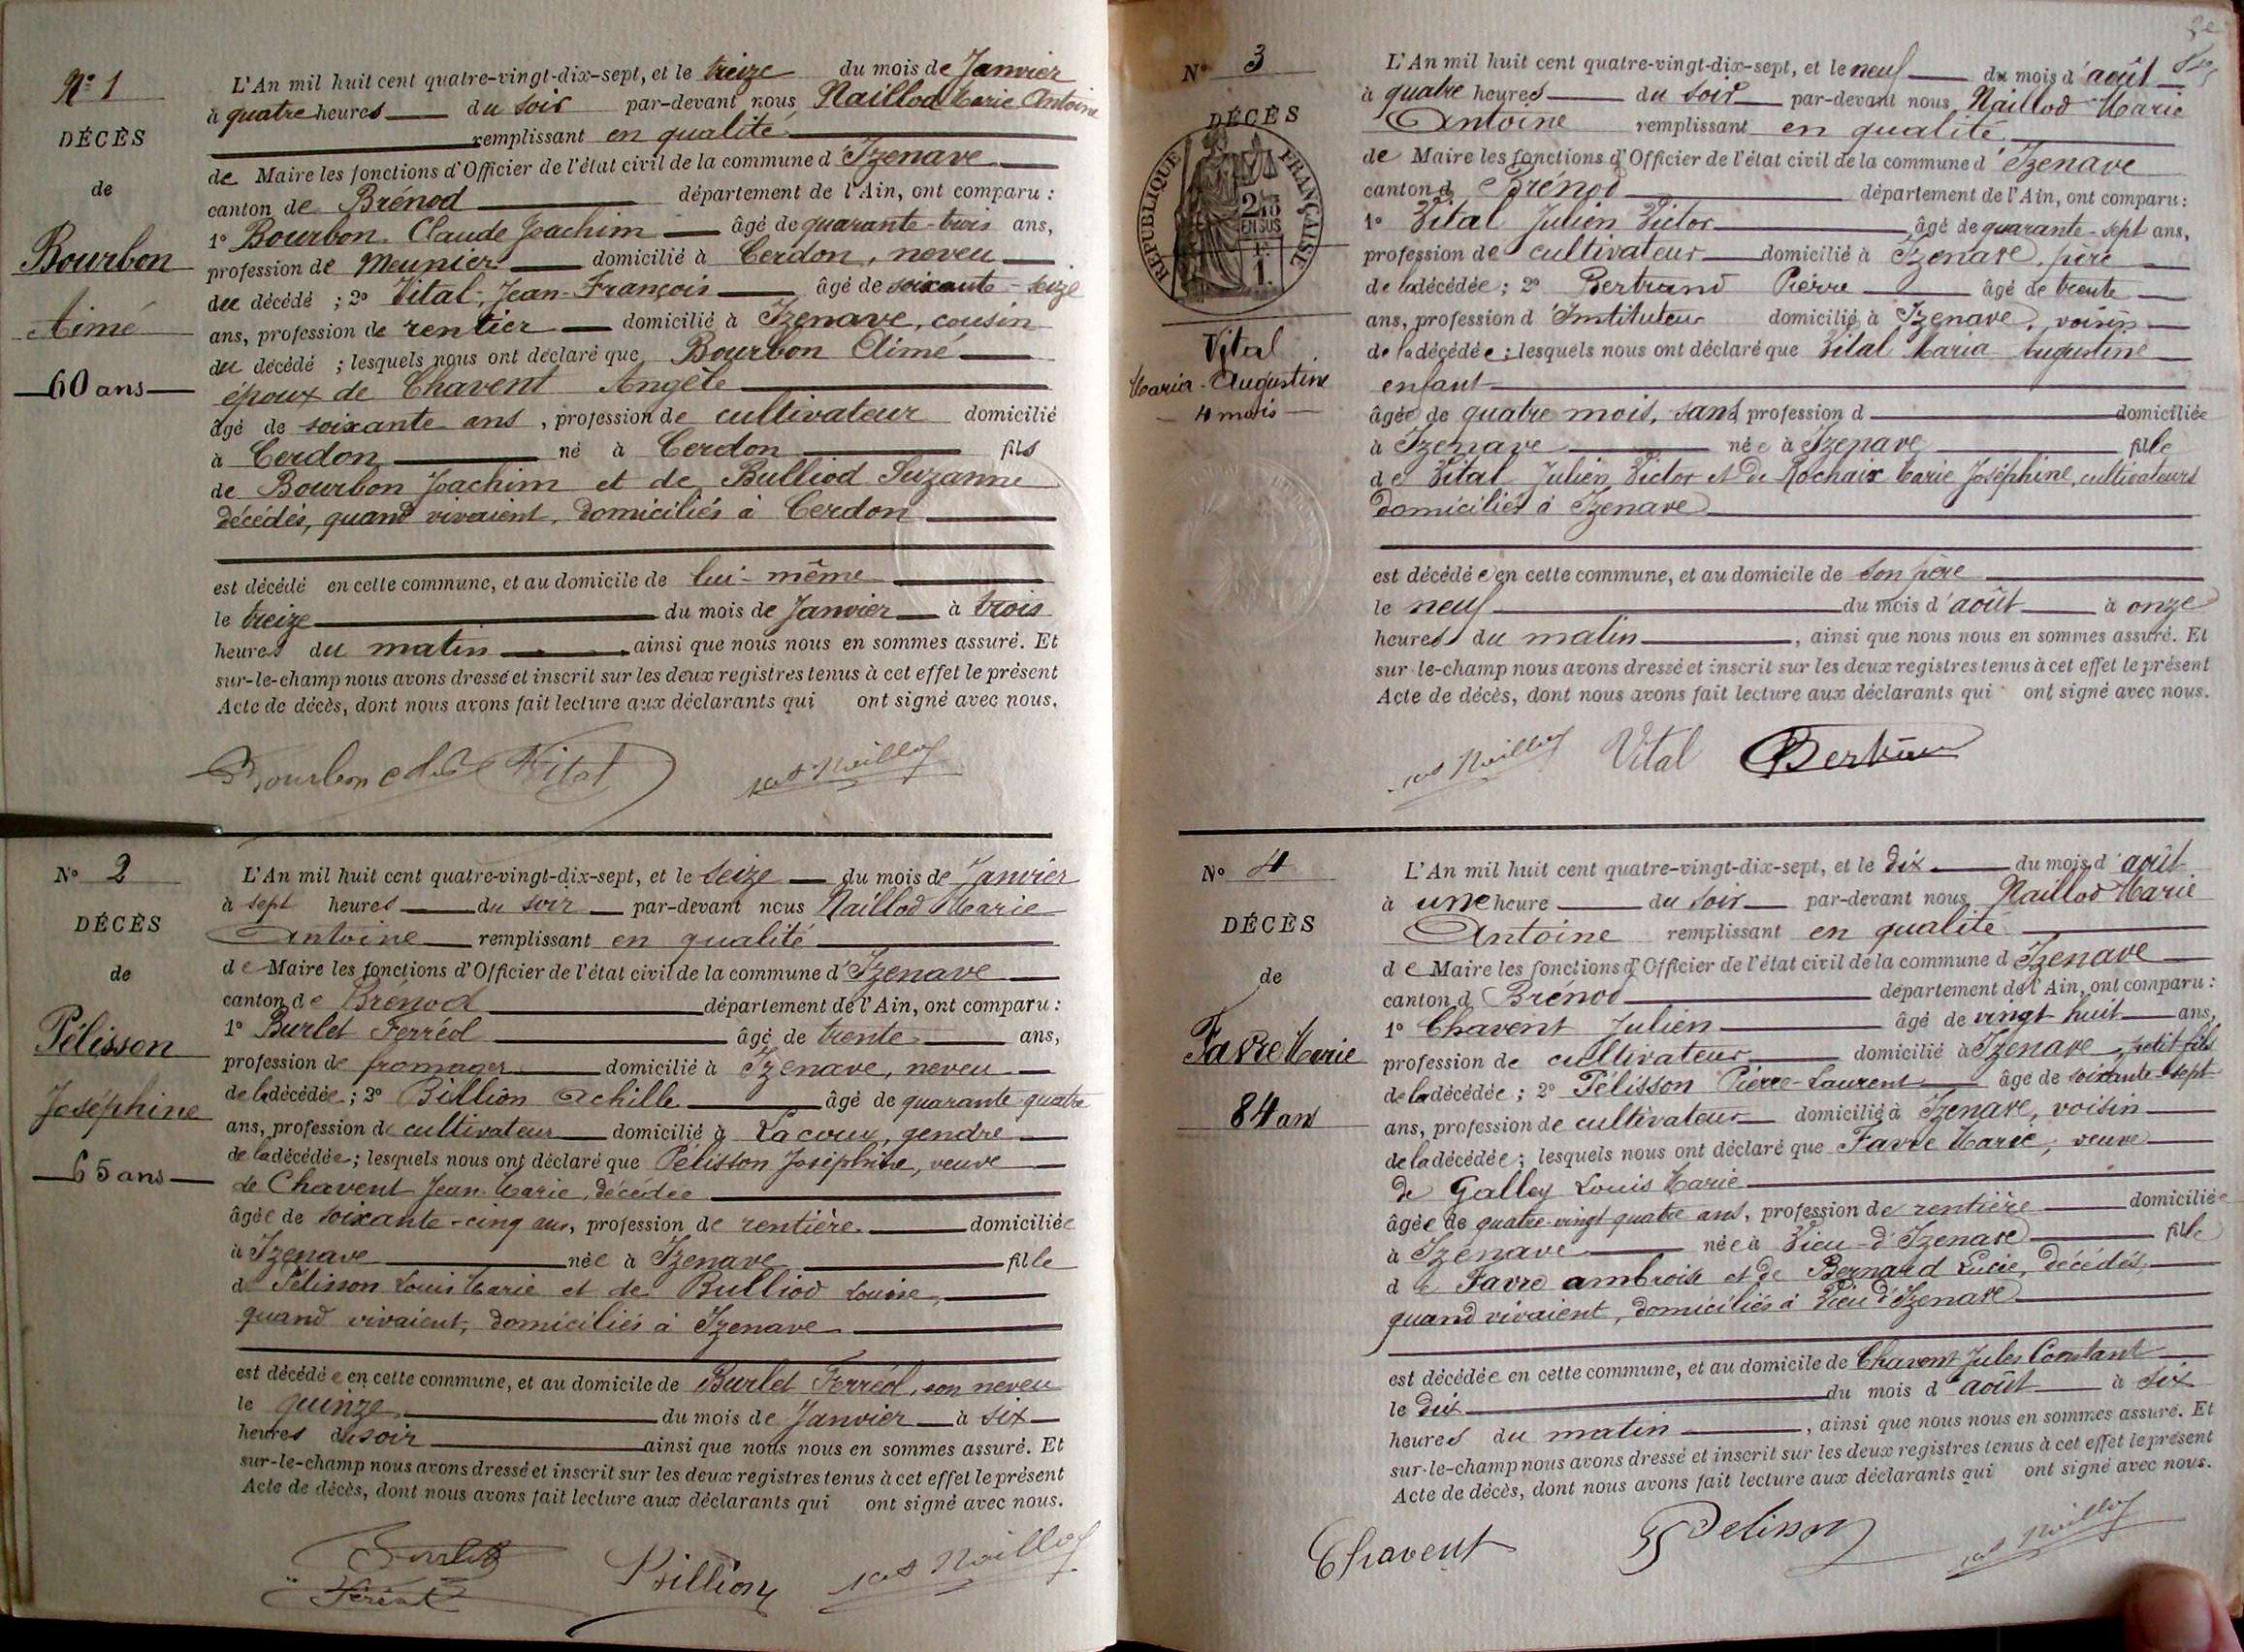 N° 1
DÉCÈS
de
Bourbon
Aimé
60 ans
L'An mil huit cent quatre-vingt-dix-sept, et le treize du mois de Janvier
à quatre heures du soir par-devant nous Naillod Marie Antoine
remplissant en qualité
de Maire les fonctions d'Officier de l'état civil de la commune d'Izenave
canton de Brénod département de l'Ain, ont comparu :
1° Bourbon Claude Joachim âgé de quarante-trois ans,
profession de Meunier domicilié à Cerdon, neveu
du décédé ; 2° Vital, Jean-François âgé de soixante-seize
ans, profession de rentier domicilié à Izenave, cousin
du décédé ; lesquels nous ont déclaré que Bourbon Aimé
époux de Chavent Angèle
âgé de soixante ans, profession de cultivateur domicilié
à Cerdon né à Cerdon fils
de Bourbon Joachim et de Bulliod Suzanne
décédés, quand vivaient, domiciliés à Cerdon
est décédé en cette commune, et au domicile de lui-même
le treize du mois de Janvier à trois
heures du matin ainsi que nous nous en sommes assuré. Et
sur-le-champ nous avons dressé et inscrit sur les deux registres tenus à cet effet le présent
Acte de décès, dont nous avons fait lecture aux déclarants qui ont signé avec nous.
Bourbon Vital Naillod
N° 2
DÉCÈS
de
Pélisson
Joséphine
65 ans
L'An mil huit cent quatre-vingt-dix-sept, et le seize du mois de Janvier
à sept heures du soir par-devant nous Naillod Marie
Antoine remplissant en qualité
de Maire les fonctions d'Officier de l'état civil de la commune d'Izenave
canton de Brénod département de l'Ain, ont comparu :
1° Burlet Ferréol âgé de trente ans,
profession de fromager domicilié à Izenave, neveu
de la décédée ; 2° Billion Achille âgé de quarante-quatre
ans, profession de cultivateur domicilié à Lacoux, gendre
de la décédée ; lesquels nous ont déclaré que Pélisson Joséphine, veuve
de Chavent Jean-Marie, décédée
âgée de soixante-cinq ans, profession de rentière domiciliée
à Izenave née à Izenave fille
de Pélisson Louis Marie et de Bulliod Louise,
quand vivaient, domiciliés à Izenave
est décédée en cette commune, et au domicile de Burlet Ferréol, son neveu
le quinze du mois de Janvier à six
heures du soir ainsi que nous nous en sommes assuré. Et
sur-le-champ nous avons dressé et inscrit sur les deux registres tenus à cet effet le présent
Acte de décès, dont nous avons fait lecture aux déclarants qui ont signé avec nous.
Burlet Billion Naillod
Ferréol
N° 3
DÉCÈS
RÉPUBLIQUE FRANÇAISE
Vital
Maria-Augustine
4 mois
L'An mil huit cent quatre-vingt-dix-sept, et le neuf du mois d'août
à quatre heures du soir par-devant nous Naillod Marie
Antoine remplissant en qualité
de Maire les fonctions d'Officier de l'état civil de la commune d'Izenave
canton d Brénod département de l'Ain, ont comparu :
1° Vital Julien Victor âgé de quarante-sept ans,
profession de cultivateur domicilié à Izenave, père
de la décédée ; 2° Bertrand Pierre âgé de trente
ans, profession d'Instituteur domicilié à Izenave, voisin
de la décédée ; lesquels nous ont déclaré que Vital Maria Augustine
enfant
âgée de quatre mois, sans profession d domiciliée
à Izenave née à Izenave fille
de Vital Julien Victor et de Rochaix Marie Joséphine, cultivateurs
domiciliés à Izenave
est décédée en cette commune, et au domicile de son père
le neuf du mois d'août à onze
heures du matin, ainsi que nous nous en sommes assuré. Et
sur-le-champ nous avons dressé et inscrit sur les deux registres tenus à cet effet le présent
Acte de décès, dont nous avons fait lecture aux déclarants qui ont signé avec nous.
Naillod Vital Bertrand
N° 4
DÉCÈS
de
Favre Marie
84 ans
L'An mil huit cent quatre-vingt-dix-sept, et le dix du mois d'août
à une heure du soir par-devant nous Naillod Marie
Antoine remplissant en qualité
de Maire les fonctions d'Officier de l'état civil de la commune d Izenave
canton d Brénod département de l'Ain, ont comparu :
1° Chavent Julien âgé de vingt-huit ans,
profession de cultivateur domicilié à Izenave, petit-fils
de la décédée ; 2° Pélisson Pierre-Laurent âgé de soixante-sept
ans, profession de cultivateur domicilié à Izenave, voisin
de la décédée ; lesquels nous ont déclaré que Favre Marie, veuve
de Galley Louis Marie
âgée de quatre-vingt quatre ans, profession de rentière domiciliée
à Izenave née à Vieu-d'Izenave fille
de Favre ambroise et de Bernard Lucie, décédés,
quand vivaient, domiciliés à Vieu d'Izenave
est décédée en cette commune, et au domicile de Chavent Jules Constant
le dix du mois d'août à six
heures du matin, ainsi que nous nous en sommes assuré. Et
sur-le-champ nous avons dressé et inscrit sur les deux registres tenus à cet effet le présent
Acte de décès, dont nous avons fait lecture aux déclarants qui ont signé avec nous.
Chavent Pelisson Naillod